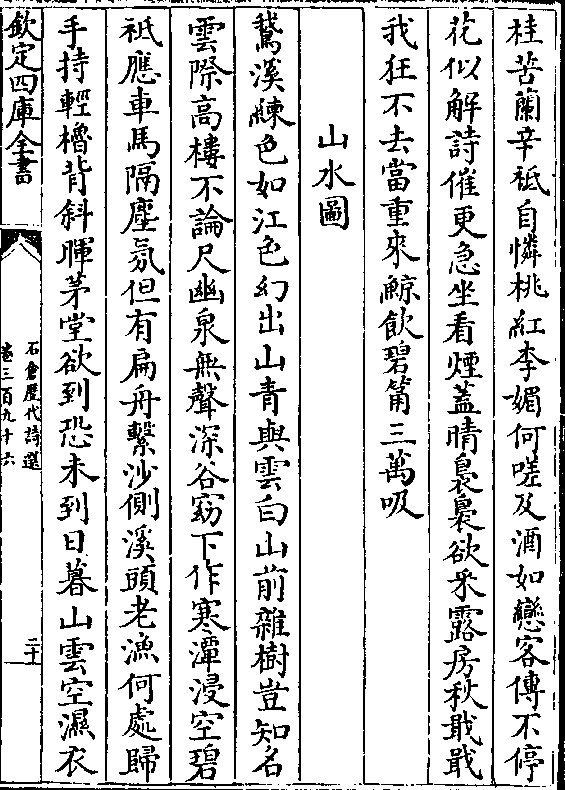 桂苦蘭辛祗自憐桃紅李媚何嗟及酒如戀客傳不停
花似解詩催更急坐看煙蓋晴裊裊欲采露房秋戢戢
我狂不去當重來鯨飲碧筩三萬吸
山水圖
鵞溪練色如江色幻出山青與雲白山前雜樹豈知名
雲際高樓不論尺幽泉無聲深谷窈下作寒潭浸空碧
祗應車馬隔塵氛但有扁舟繫沙側溪頭老漁何處歸
手持輕櫓背斜暉茅堂欲到恐未到日暮山雲空濕衣
欽定四庫全書
石倉歷代詩選
卷三百九十六
二十